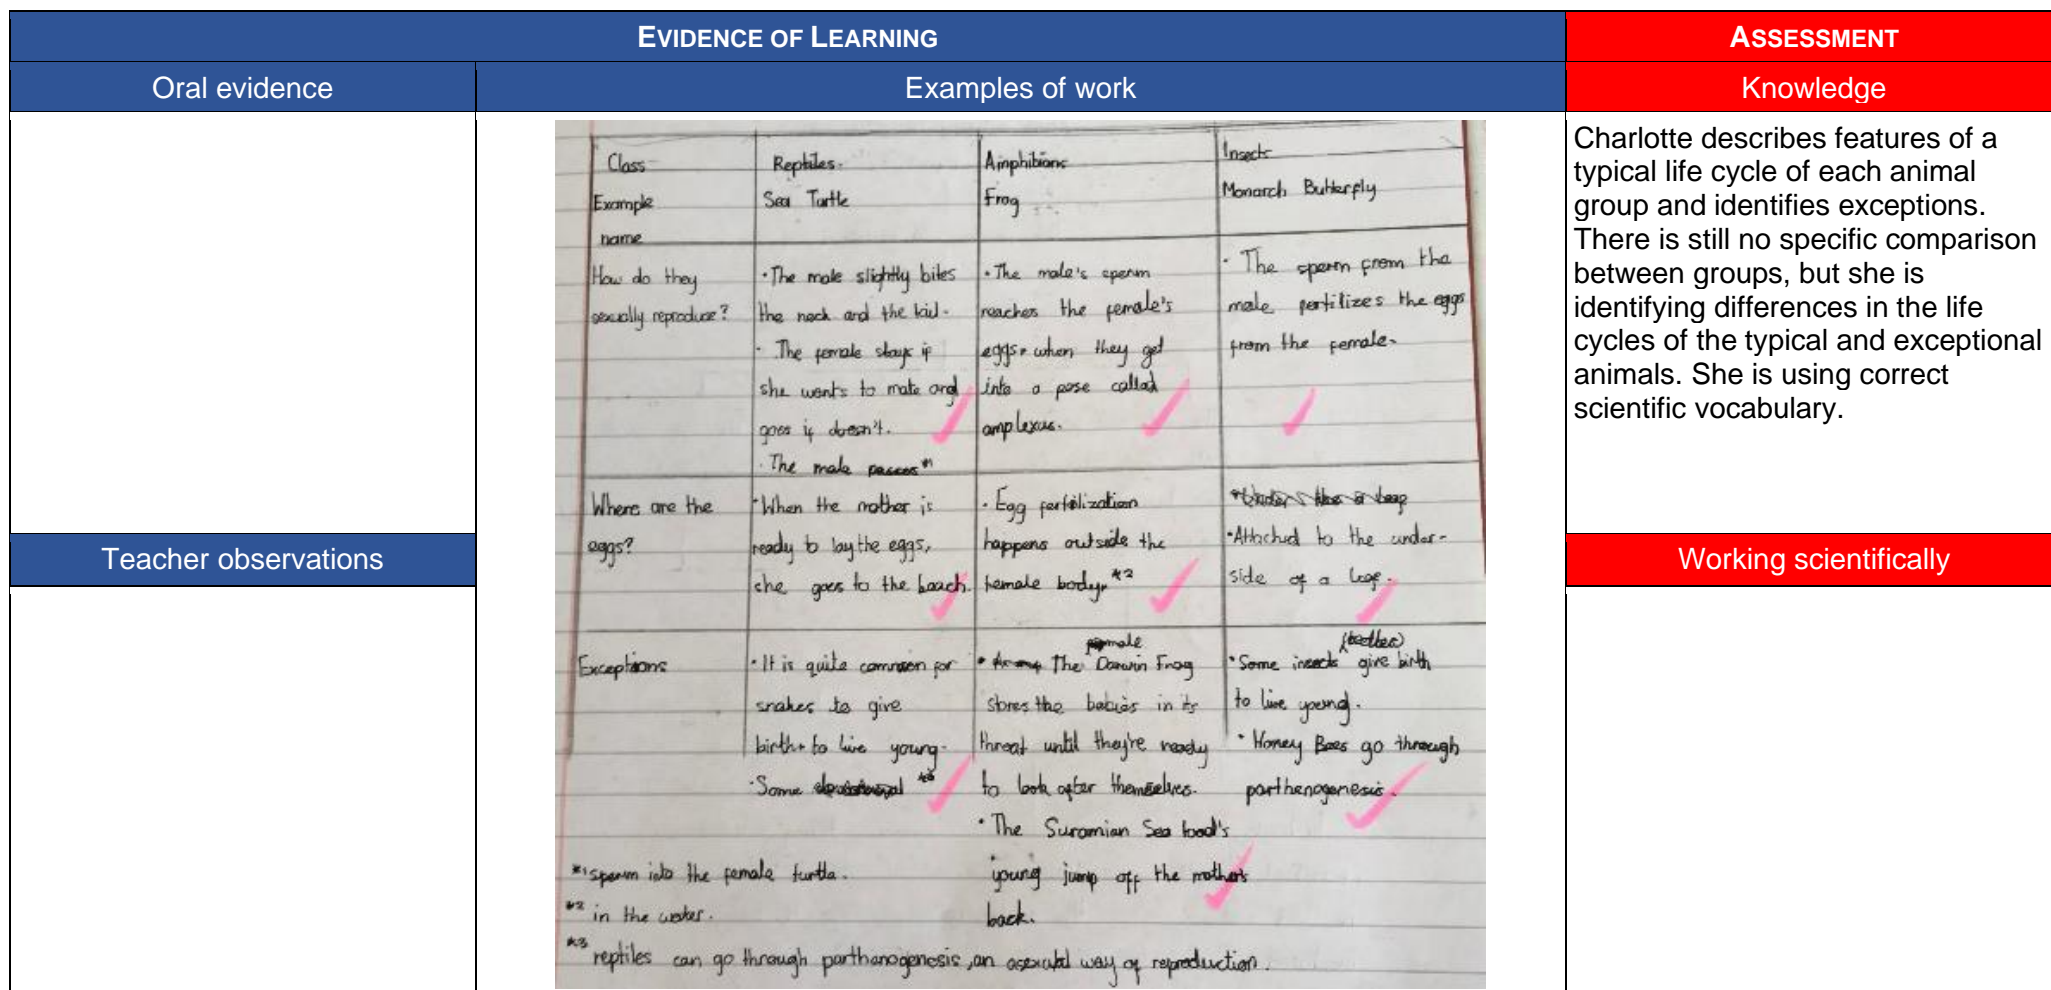 EVIDENCE OF LEARNING
ASSESSMENT
Oral evidence
Examples of work
Knowledge
Class
Example
name
Reptiles.
Sea Turtle
Amphibians
Frog
Insects
Monarch Butterfly
How do they
sexually reproduce?
·The male slightly bites
the neck and the tail.
· The female stays if
she wants to mate and
goes if doesn't.
· The male passes *1
·The male's sperm
reaches the female's
eggs, when they get
into a pose called
amplexus.
· The sperm from the
male fertilizes the eggs
from the female.
Where are the
eggs?
·When the mother is
ready to lay the eggs,
she goes to the beach.
· Egg fertilization
happens outside the
female body, *2
·Attached to the under-
side of a leaf.
Exceptions
·It is quite common for
snakes to give
birth to live young.
·Some *3
· The male Darwin Frog
stores the babies in its
throat until they're ready
to look after themselves.
· The Suramian Sea toad's
young jump off the mother's
back.
·Some insects (beetles) give birth
to live young.
· Honey Bees go through
parthenogenesis.
*1 sperm into the female turtle.
*2 in the water.
*3 reptiles can go through parthanogenesis, an asexual way of reproduction.
Charlotte describes features of a
typical life cycle of each animal
group and identifies exceptions.
There is still no specific comparison
between groups, but she is
identifying differences in the life
cycles of the typical and exceptional
animals. She is using correct
scientific vocabulary.
Teacher observations
Working scientifically